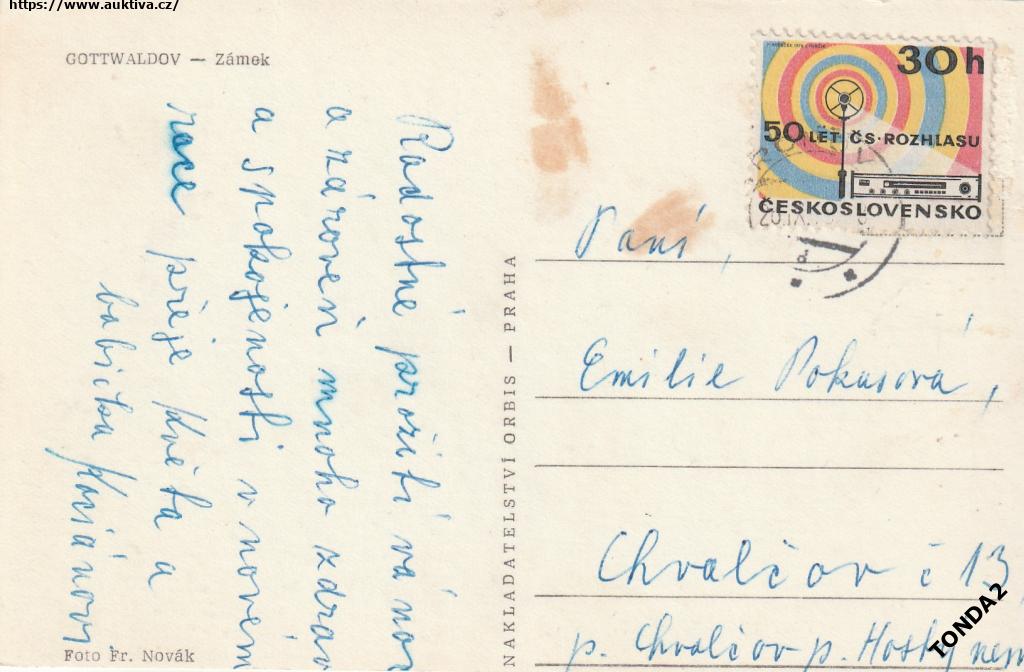 https://www.auktiva.cz/
GOTTWALDOV — Zámek
Radostné prožití vánoc
a zároveň mnoho zdraví
a spokojenosti v novém
roce přeje Květa a
babička Kociánovi
Foto Fr. Novák
NAKLADATELSTVÍ ORBIS — PRAHA
30h
50 LET ČS. ROZHLASU
ČESKOSLOVENSKO
Paní,
Emilie Pokusová,
Chvalčov č 13
p. Chvalčov p. Host
TONDA2